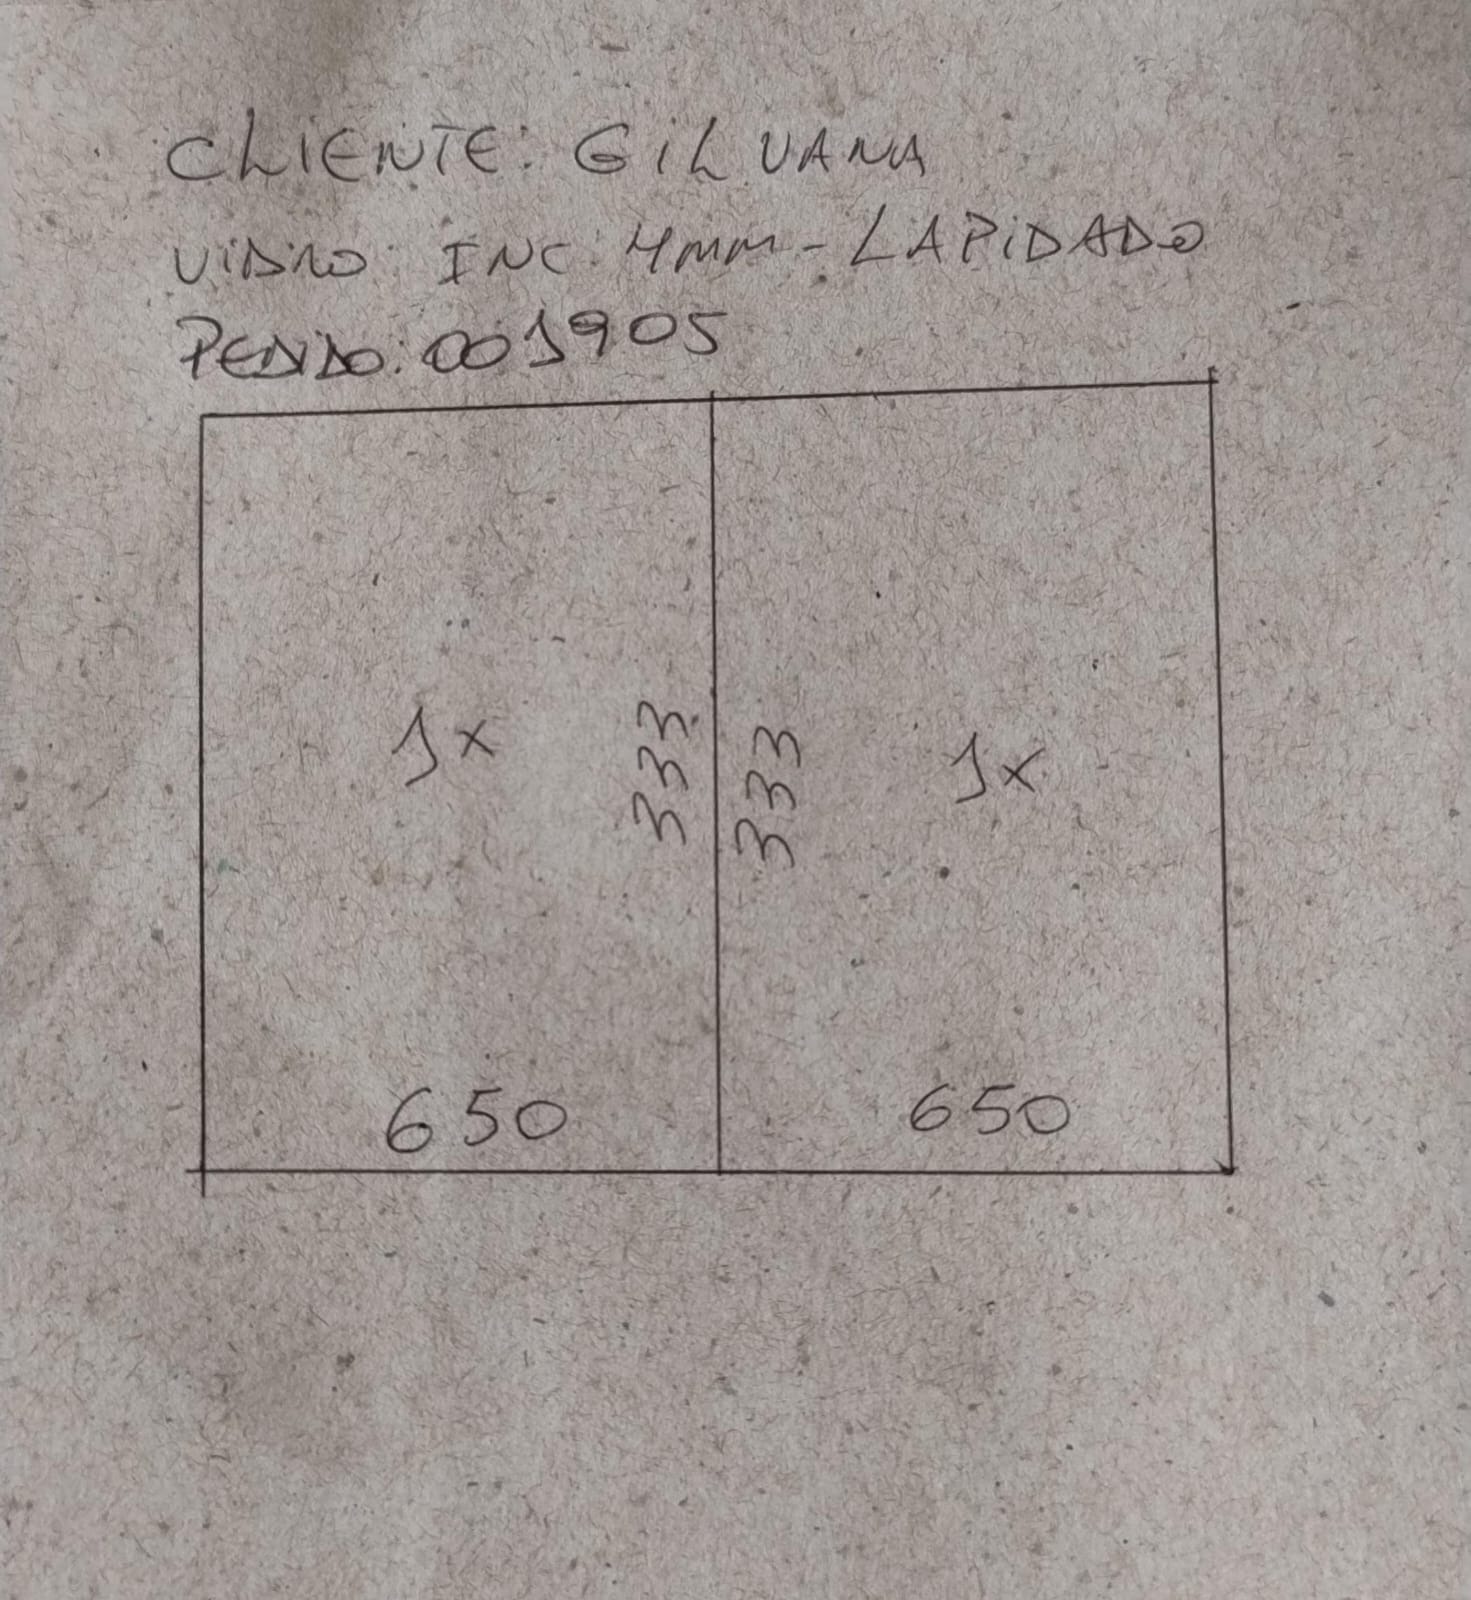 CLIENTE: GILVANA
VIDRO: INC: 4MM - LAPIDADO
PEDIDO: 001905
1x
333
333
1x
650
650